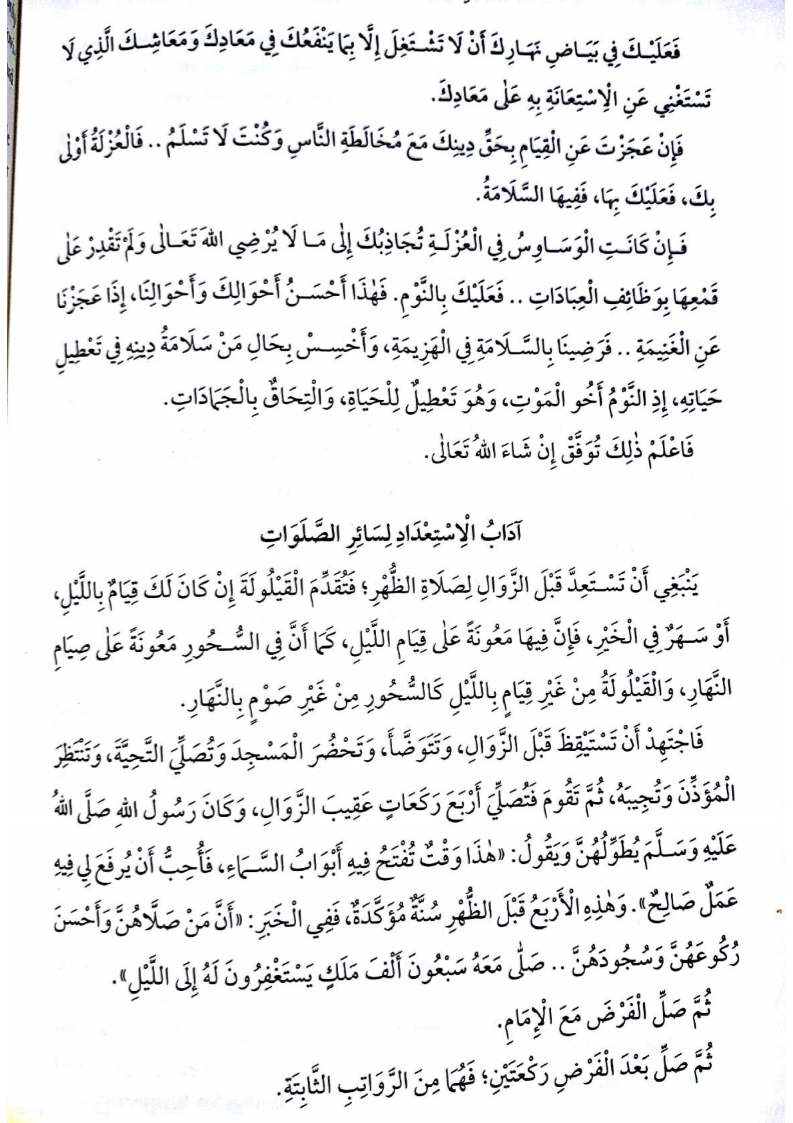 فَعَلَيْكَ فِي بَيَاضِ نَهَارِكَ أَنْ لَا تَشْتَغِلَ إِلَّا بِمَا يَنْفَعُكَ فِي مَعَادِكَ وَمَعَاشِكَ الَّذِي لَا
تَسْتَغْنِي عَنِ الْاِسْتِعَانَةِ بِهِ عَلَى مَعَادِكَ.
فَإِنْ عَجَزْتَ عَنِ الْقِيَامِ بِحَقِّ دِينِكَ مَعَ مُخَالَطَةِ النَّاسِ وَكُنْتَ لَا تَسْلَمُ .. فَالْعُزْلَةُ أَوْلَى
بِكَ، فَعَلَيْكَ بِهَا، فَفِيهَا السَّلَامَةُ.
فَإِنْ كَانَتِ الْوَسَاوِسُ فِي الْعُزْلَةِ تُجَاذِبُكَ إِلَى مَا لَا يُرْضِي اللهَ تَعَالَى وَلَمْ تَقْدِرْ عَلَى
قَمْعِهَا بِوَظَائِفِ الْعِبَادَاتِ .. فَعَلَيْكَ بِالنَّوْمِ. فَهٰذَا أَحْسَنُ أَحْوَالِكَ وَأَحْوَالِنَا، إِذَا عَجَزْنَا
عَنِ الْغَنِيمَةِ .. فَرَضِينَا بِالسَّلَامَةِ فِي الْهَزِيمَةِ، وَأَخْسِسْ بِحَالِ مَنْ سَلَامَةُ دِينِهِ فِي تَعْطِيلِ
حَيَاتِهِ، إِذِ النَّوْمُ أَخُو الْمَوْتِ، وَهُوَ تَعْطِيلٌ لِلْحَيَاةِ، وَالْتِحَاقٌ بِالْجَمَادَاتِ.
فَاعْلَمْ ذٰلِكَ تُوَفَّقْ إِنْ شَاءَ اللهُ تَعَالَى.
آدَابُ الْاِسْتِعْدَادِ لِسَائِرِ الصَّلَوَاتِ
يَنْبَغِي أَنْ تَسْتَعِدَّ قَبْلَ الزَّوَالِ لِصَلَاةِ الظُّهْرِ؛ فَتُقَدِّمَ الْقَيْلُولَةَ إِنْ كَانَ لَكَ قِيَامٌ بِاللَّيْلِ،
أَوْ سَهَرٌ فِي الْخَيْرِ، فَإِنَّ فِيهَا مَعُونَةً عَلَى قِيَامِ اللَّيْلِ، كَمَا أَنَّ فِي السُّحُورِ مَعُونَةً عَلَى صِيَامِ
النَّهَارِ، وَالْقَيْلُولَةُ مِنْ غَيْرِ قِيَامٍ بِاللَّيْلِ كَالسُّحُورِ مِنْ غَيْرِ صَوْمٍ بِالنَّهَارِ.
فَاجْتَهِدْ أَنْ تَسْتَيْقِظَ قَبْلَ الزَّوَالِ، وَتَتَوَضَّأَ، وَتَحْضُرَ الْمَسْجِدَ وَتُصَلِّيَ التَّحِيَّةَ، وَتَنْتَظِرَ
الْمُؤَذِّنَ وَتُجِيبَهُ، ثُمَّ تَقُومَ فَتُصَلِّيَ أَرْبَعَ رَكَعَاتٍ عَقِيبَ الزَّوَالِ، وَكَانَ رَسُولُ اللهِ صَلَّى اللهُ
عَلَيْهِ وَسَلَّمَ يُطَوِّلُهُنَّ وَيَقُولُ: «هٰذَا وَقْتٌ تُفْتَحُ فِيهِ أَبْوَابُ السَّمَاءِ، فَأُحِبُّ أَنْ يُرْفَعَ لِي فِيهِ
عَمَلٌ صَالِحٌ». وَهٰذِهِ الْأَرْبَعُ قَبْلَ الظُّهْرِ سُنَّةٌ مُؤَكَّدَةٌ، فَفِي الْخَبَرِ: «أَنَّ مَنْ صَلَّاهُنَّ وَأَحْسَنَ
رُكُوعَهُنَّ وَسُجُودَهُنَّ .. صَلَّى مَعَهُ سَبْعُونَ أَلْفَ مَلَكٍ يَسْتَغْفِرُونَ لَهُ إِلَى اللَّيْلِ».
ثُمَّ صَلِّ الْفَرْضَ مَعَ الْإِمَامِ.
ثُمَّ صَلِّ بَعْدَ الْفَرْضِ رَكْعَتَيْنِ؛ فَهُمَا مِنَ الرَّوَاتِبِ الثَّابِتَةِ.